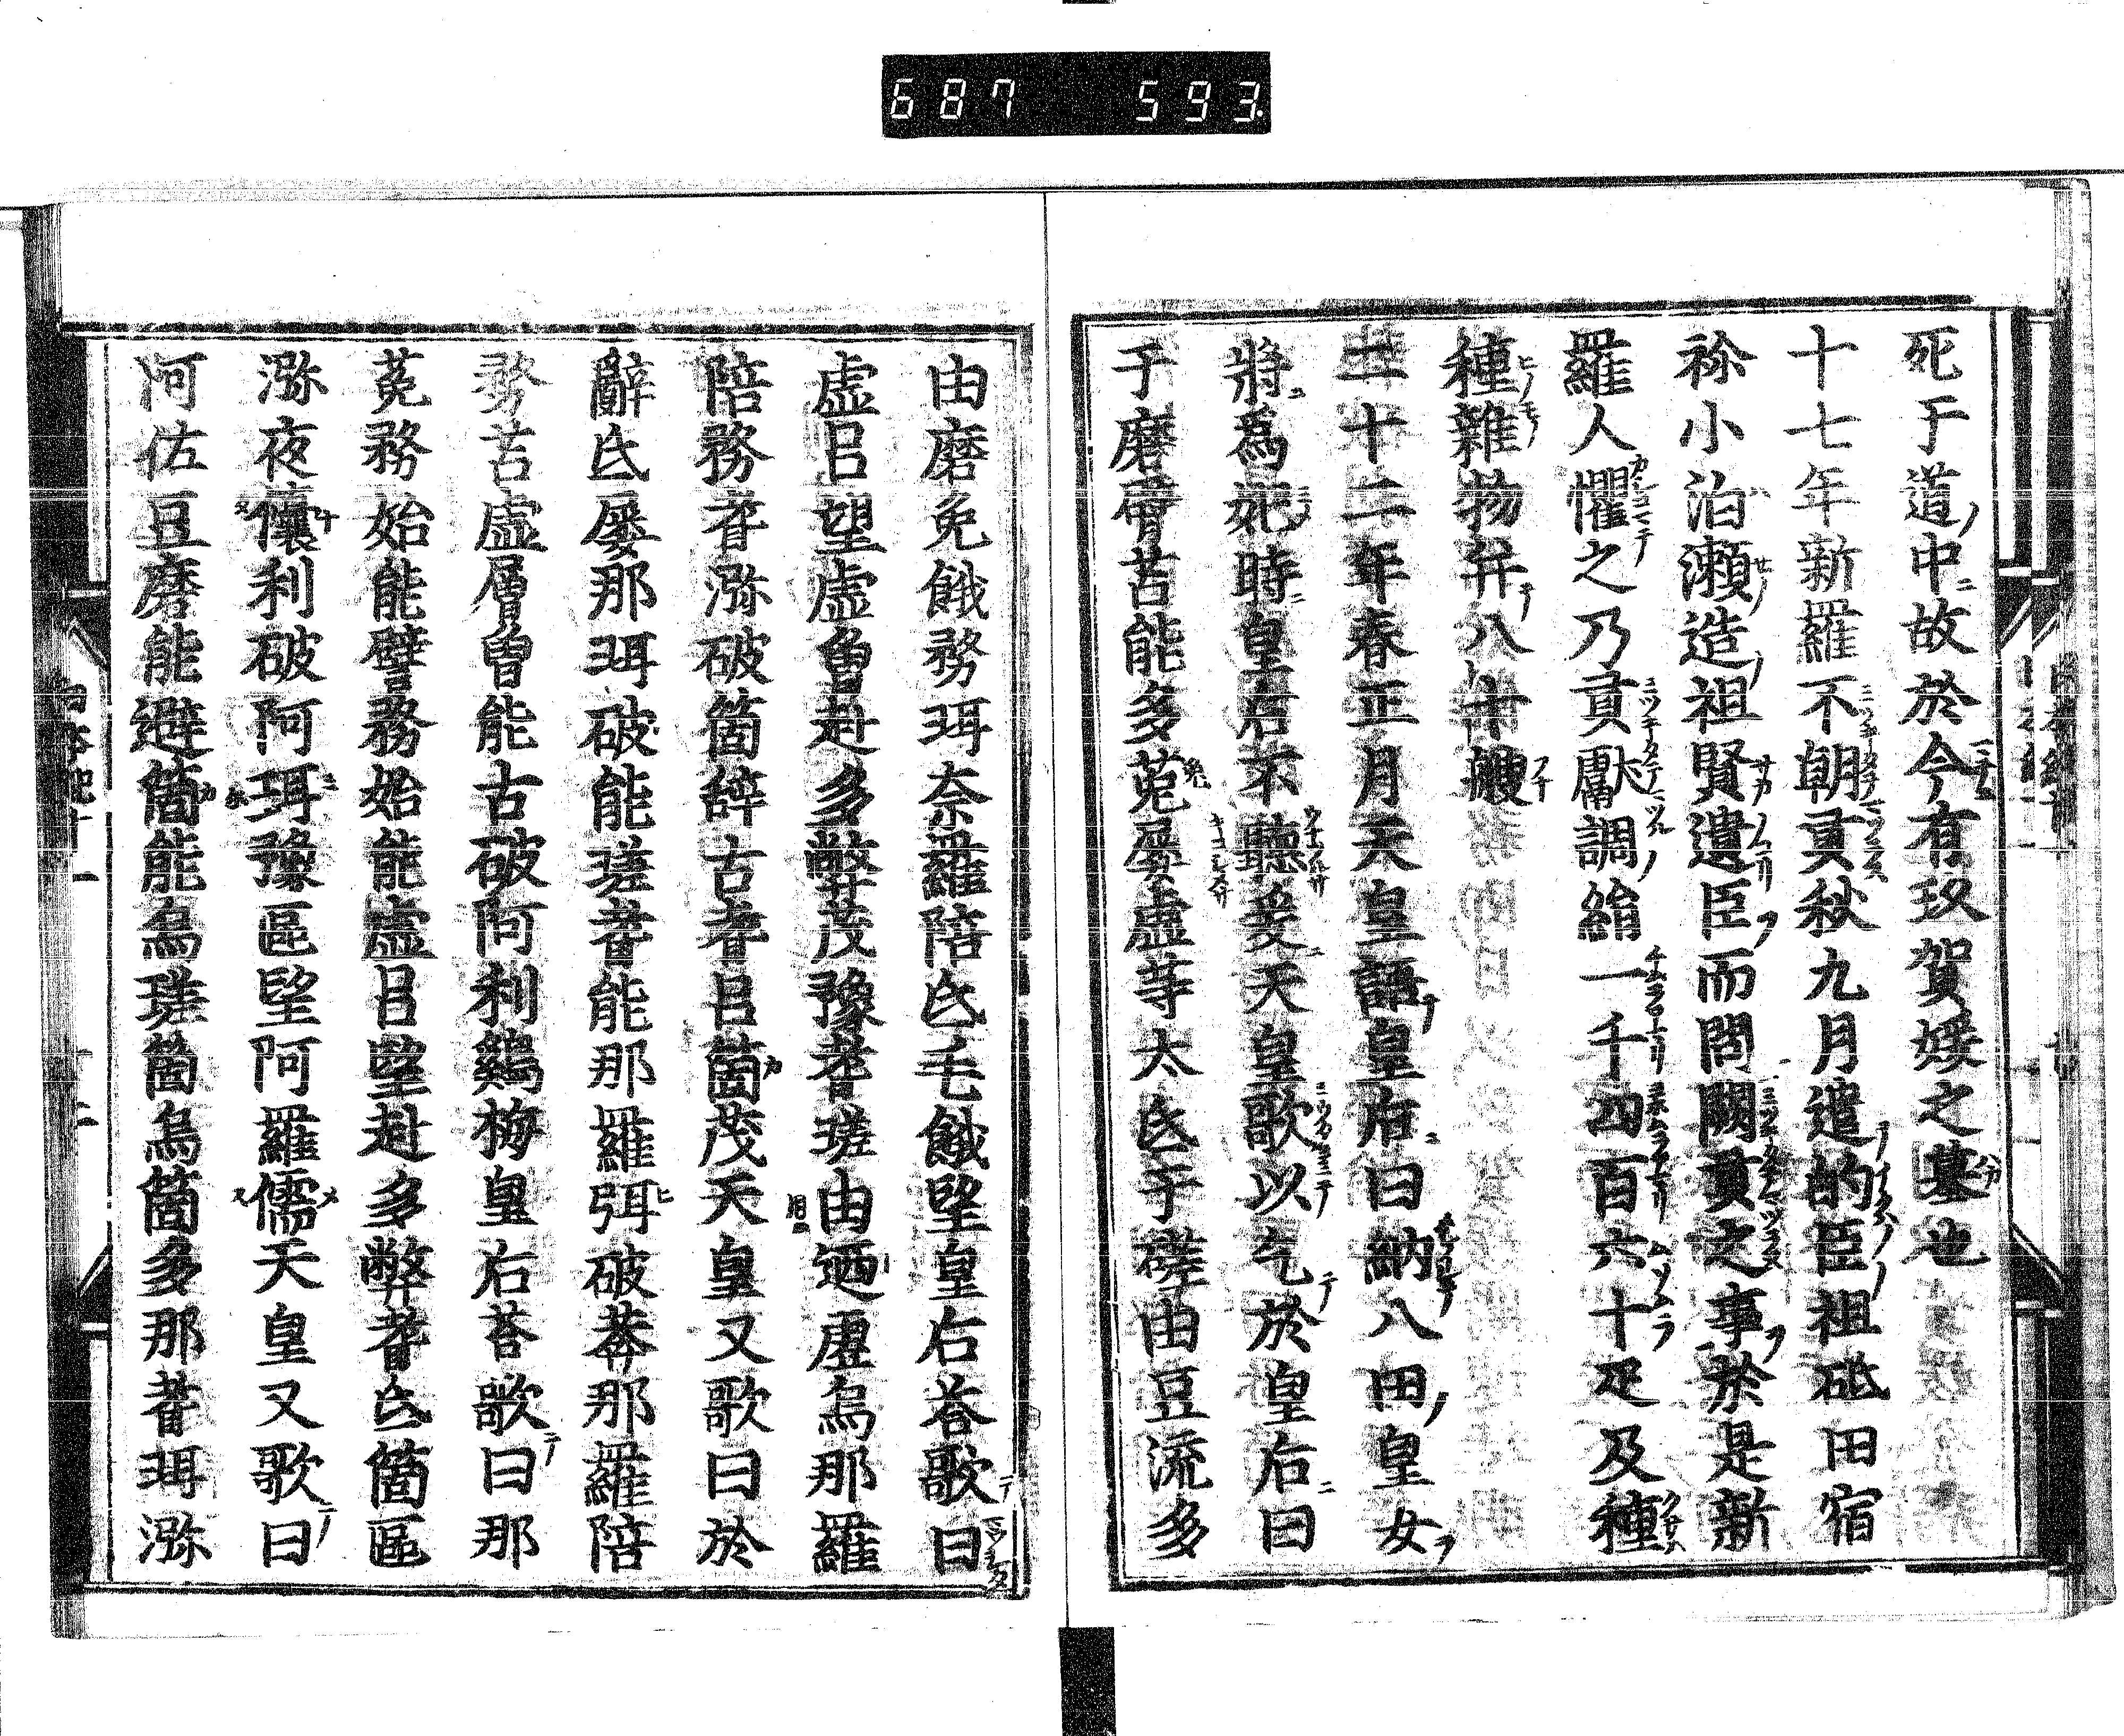 687 593
死于道中故於今有玖賀媛之墓也
十七年新羅不朝貢秋九月遣的臣祖砥田宿
祢小泊瀬造祖賢遺臣而問闕貢之事於是新
羅人懼之乃貢獻調絹一千四百六十疋及種
種雜物并八十艘
二十二年春正月天皇語皇后曰納八田皇女
將爲妃時皇后不聽爰天皇歌以乞於皇后曰
于磨臂苔能多菟屡虚等太氐于磋由豆流多
由磨免餓務珥奈羅陪氐毛餓望皇后荅歌曰
虚呂望虚魯赴多敝茂豫耆瑳由廼虚烏那羅
陪務耆瀰破箇辞古耆呂箇茂天皇又歌曰於
辭氐屡那珥破能瑳耆能那羅弭破莽那羅陪
務苔虚層曽能古破阿利鷄梅皇后荅歌曰那
菟務始能譬務始能虚呂望赴多弊耆氐箇區
瀰夜儾利破阿珥豫區望阿羅儒天皇又歌曰
阿佐且磨能避箇能烏瑳箇烏箇多那耆珥瀰